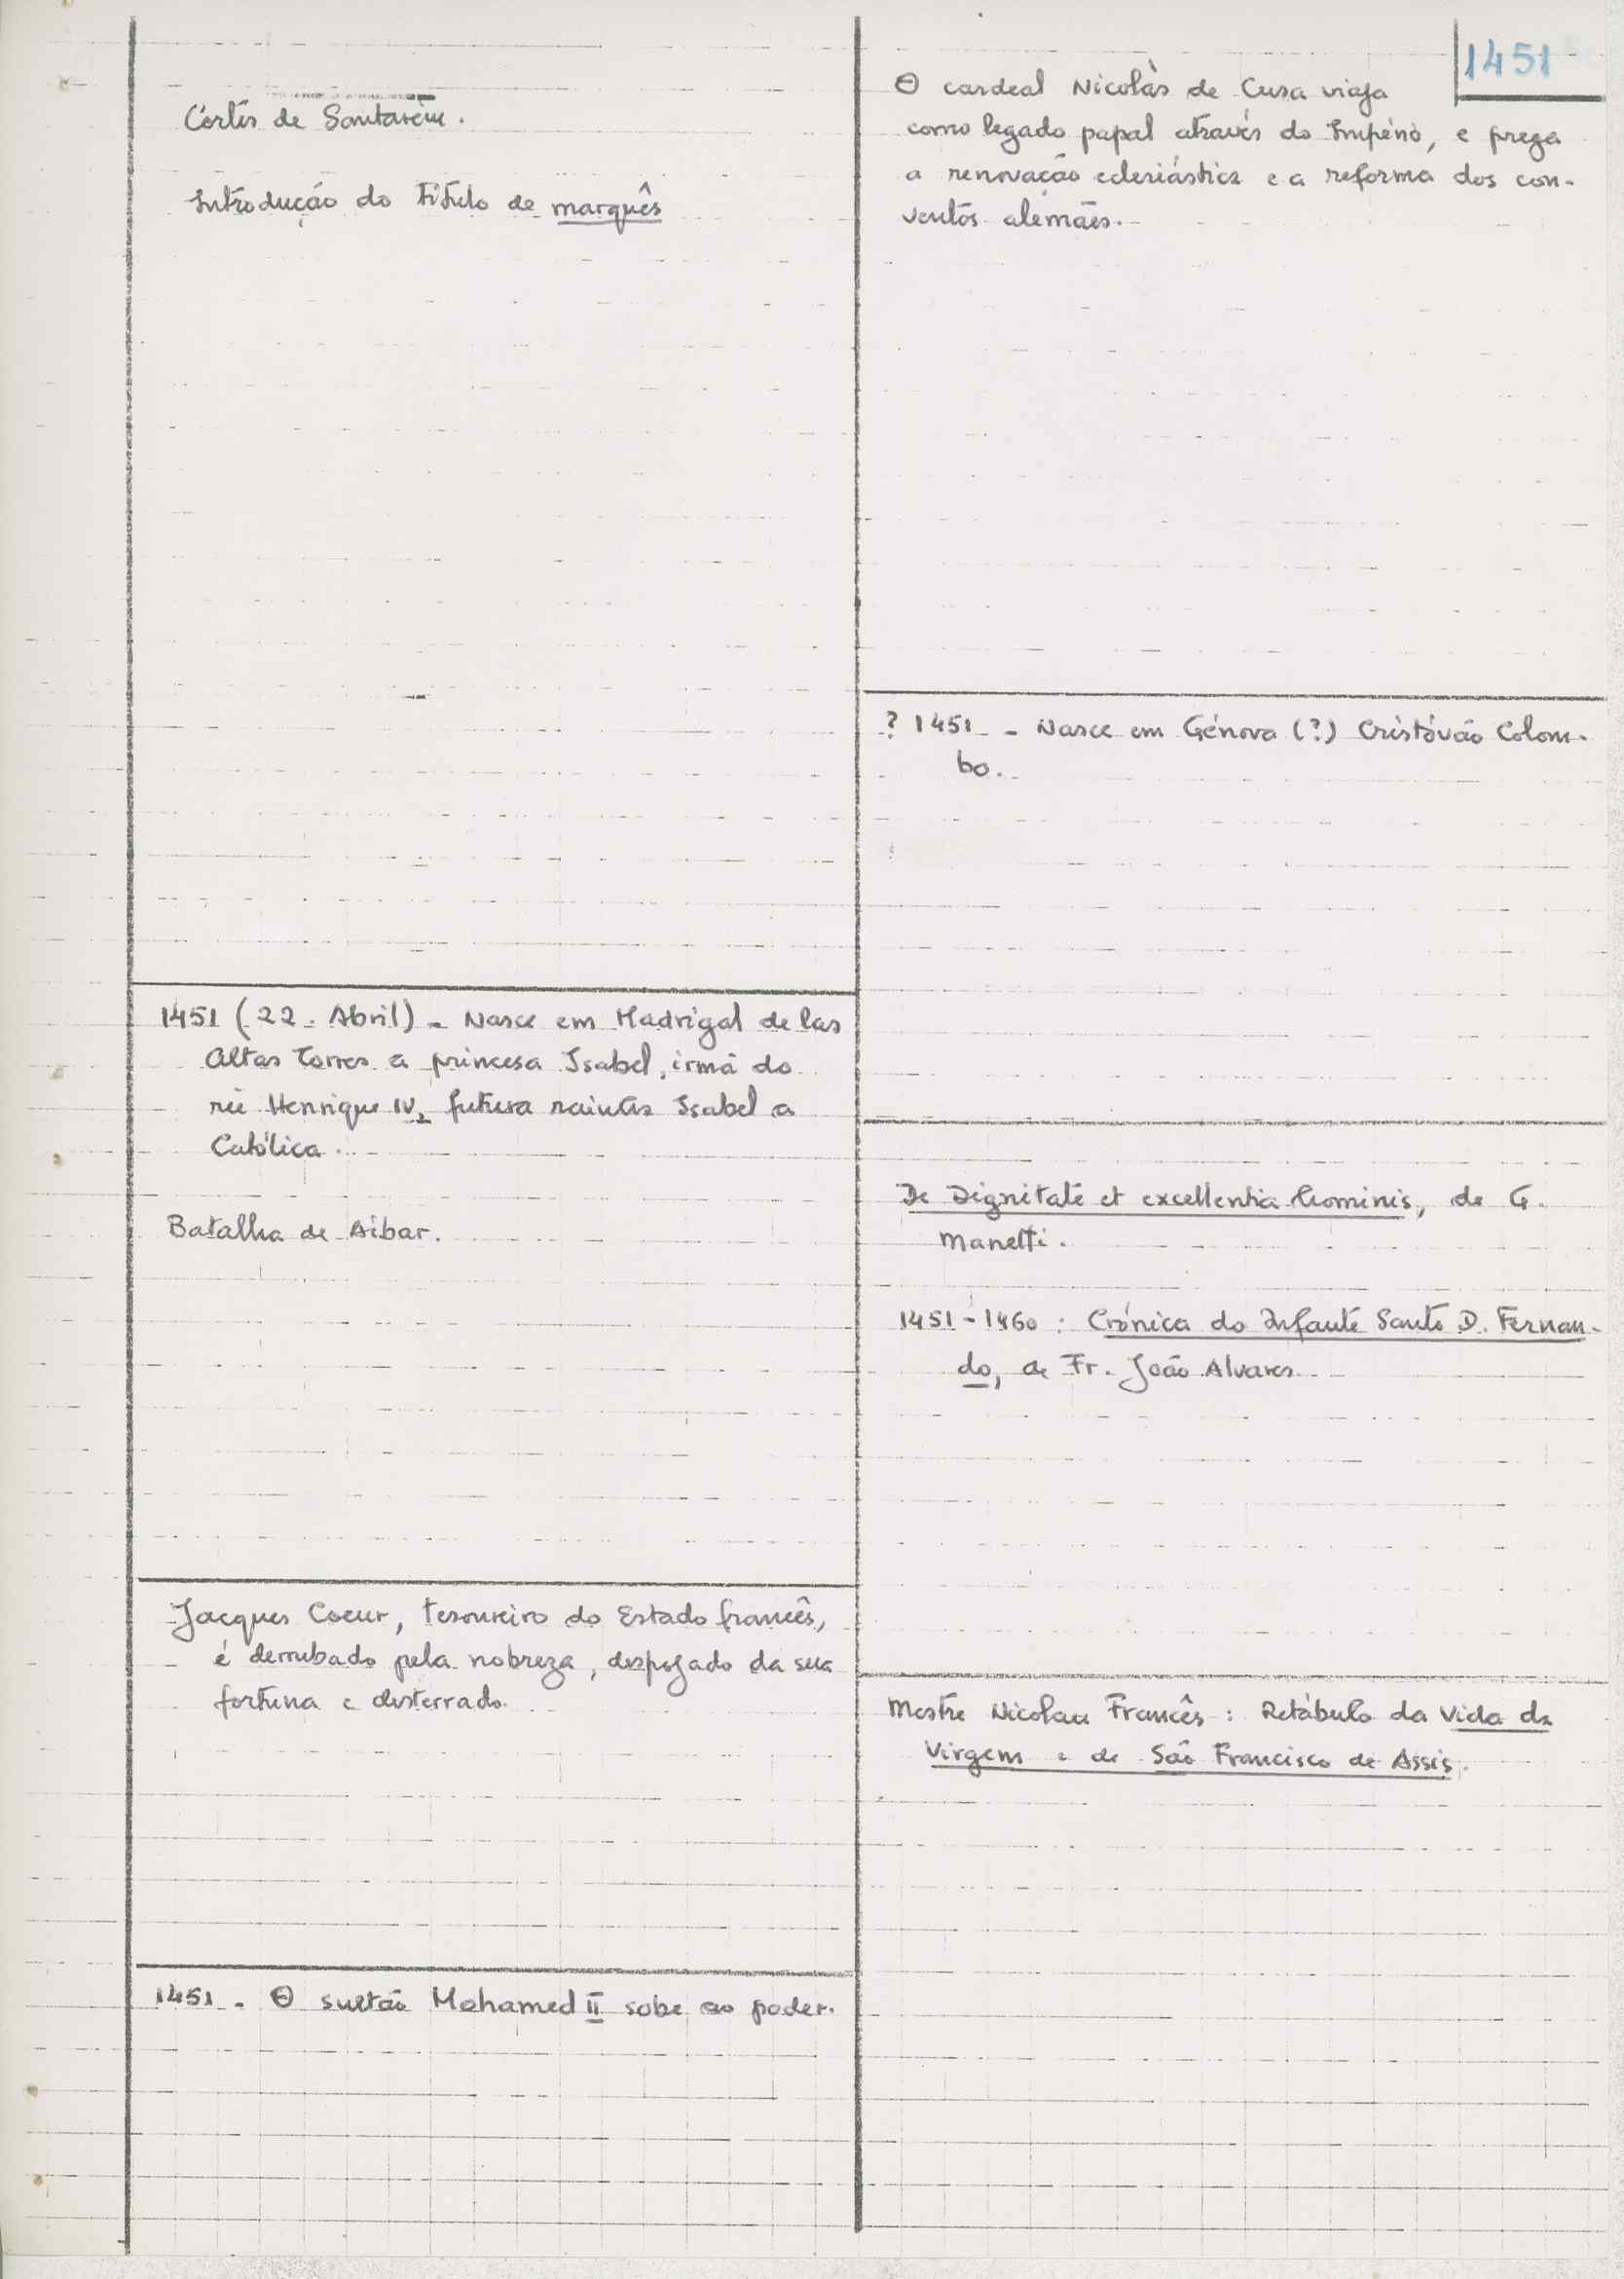 Córtes de Santarém.
Introdução do título de marquês
1451 (22. Abril) - Nasce em Madrigal de las
Altas Torres a princesa Isabel, irmã do
rei Henrique IV, futura rainha Isabel a
Católica.
Batalha de Aibar.
Jacques Coeur, tesoureiro do Estado francês,
é derrubado pela nobreza, despojado da sua
fortuna e desterrado.
1451. O sultão Mohamed II sobe ao poder.
1451
O cardeal Nicolàs de Cusa viaja
como legado papal através do Império, e prega
a renovação eclesiástica e a reforma dos con-
ventos alemães.
? 1451 - Nasce em Génova (?) Cristóvão Colom-
bo.
De Dignitate et excellentia hominis, de G.
Manetti.
1451-1460: Crónica do Infante Santo D. Fernan-
do, de Fr. João Alvares
Mestre Nicolau Francês: Retábulo da Vida da
Virgem e de São Francisco de Assis.